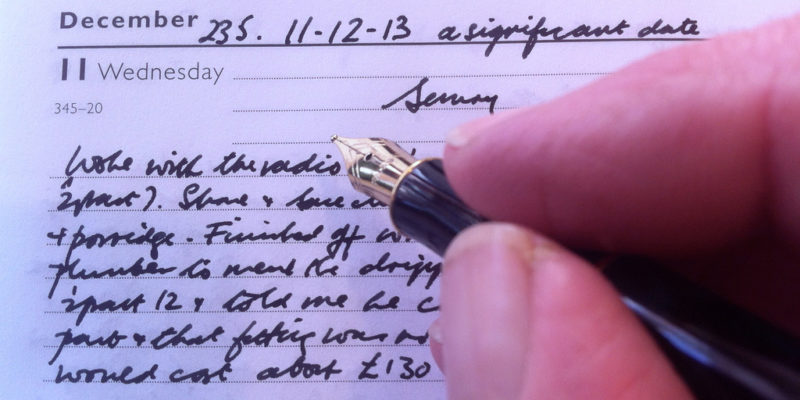 December 235. 11-12-13 a significant date
11 Wednesday
345-20
Woke with the radio
¼ past 7. &
& porridge. Finished off
plumber to mend the
¼ past 12 & told me he
part & that fitting was
would cost about £130